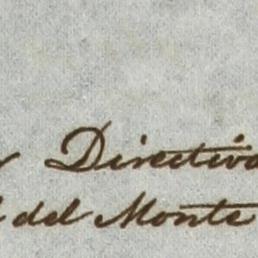 Directiva
del Monte